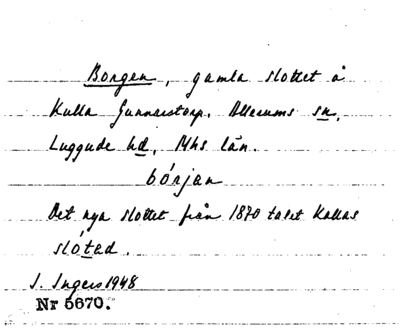 Borgen, gamla slottet å
Kulla Gunnarstorp. Allerums sn,
Luggude hd, Mhs län.
bórjan
Det nya slottet från 1870 talet kallas
slótad.
I. Ingers 1948
Nr 5670.